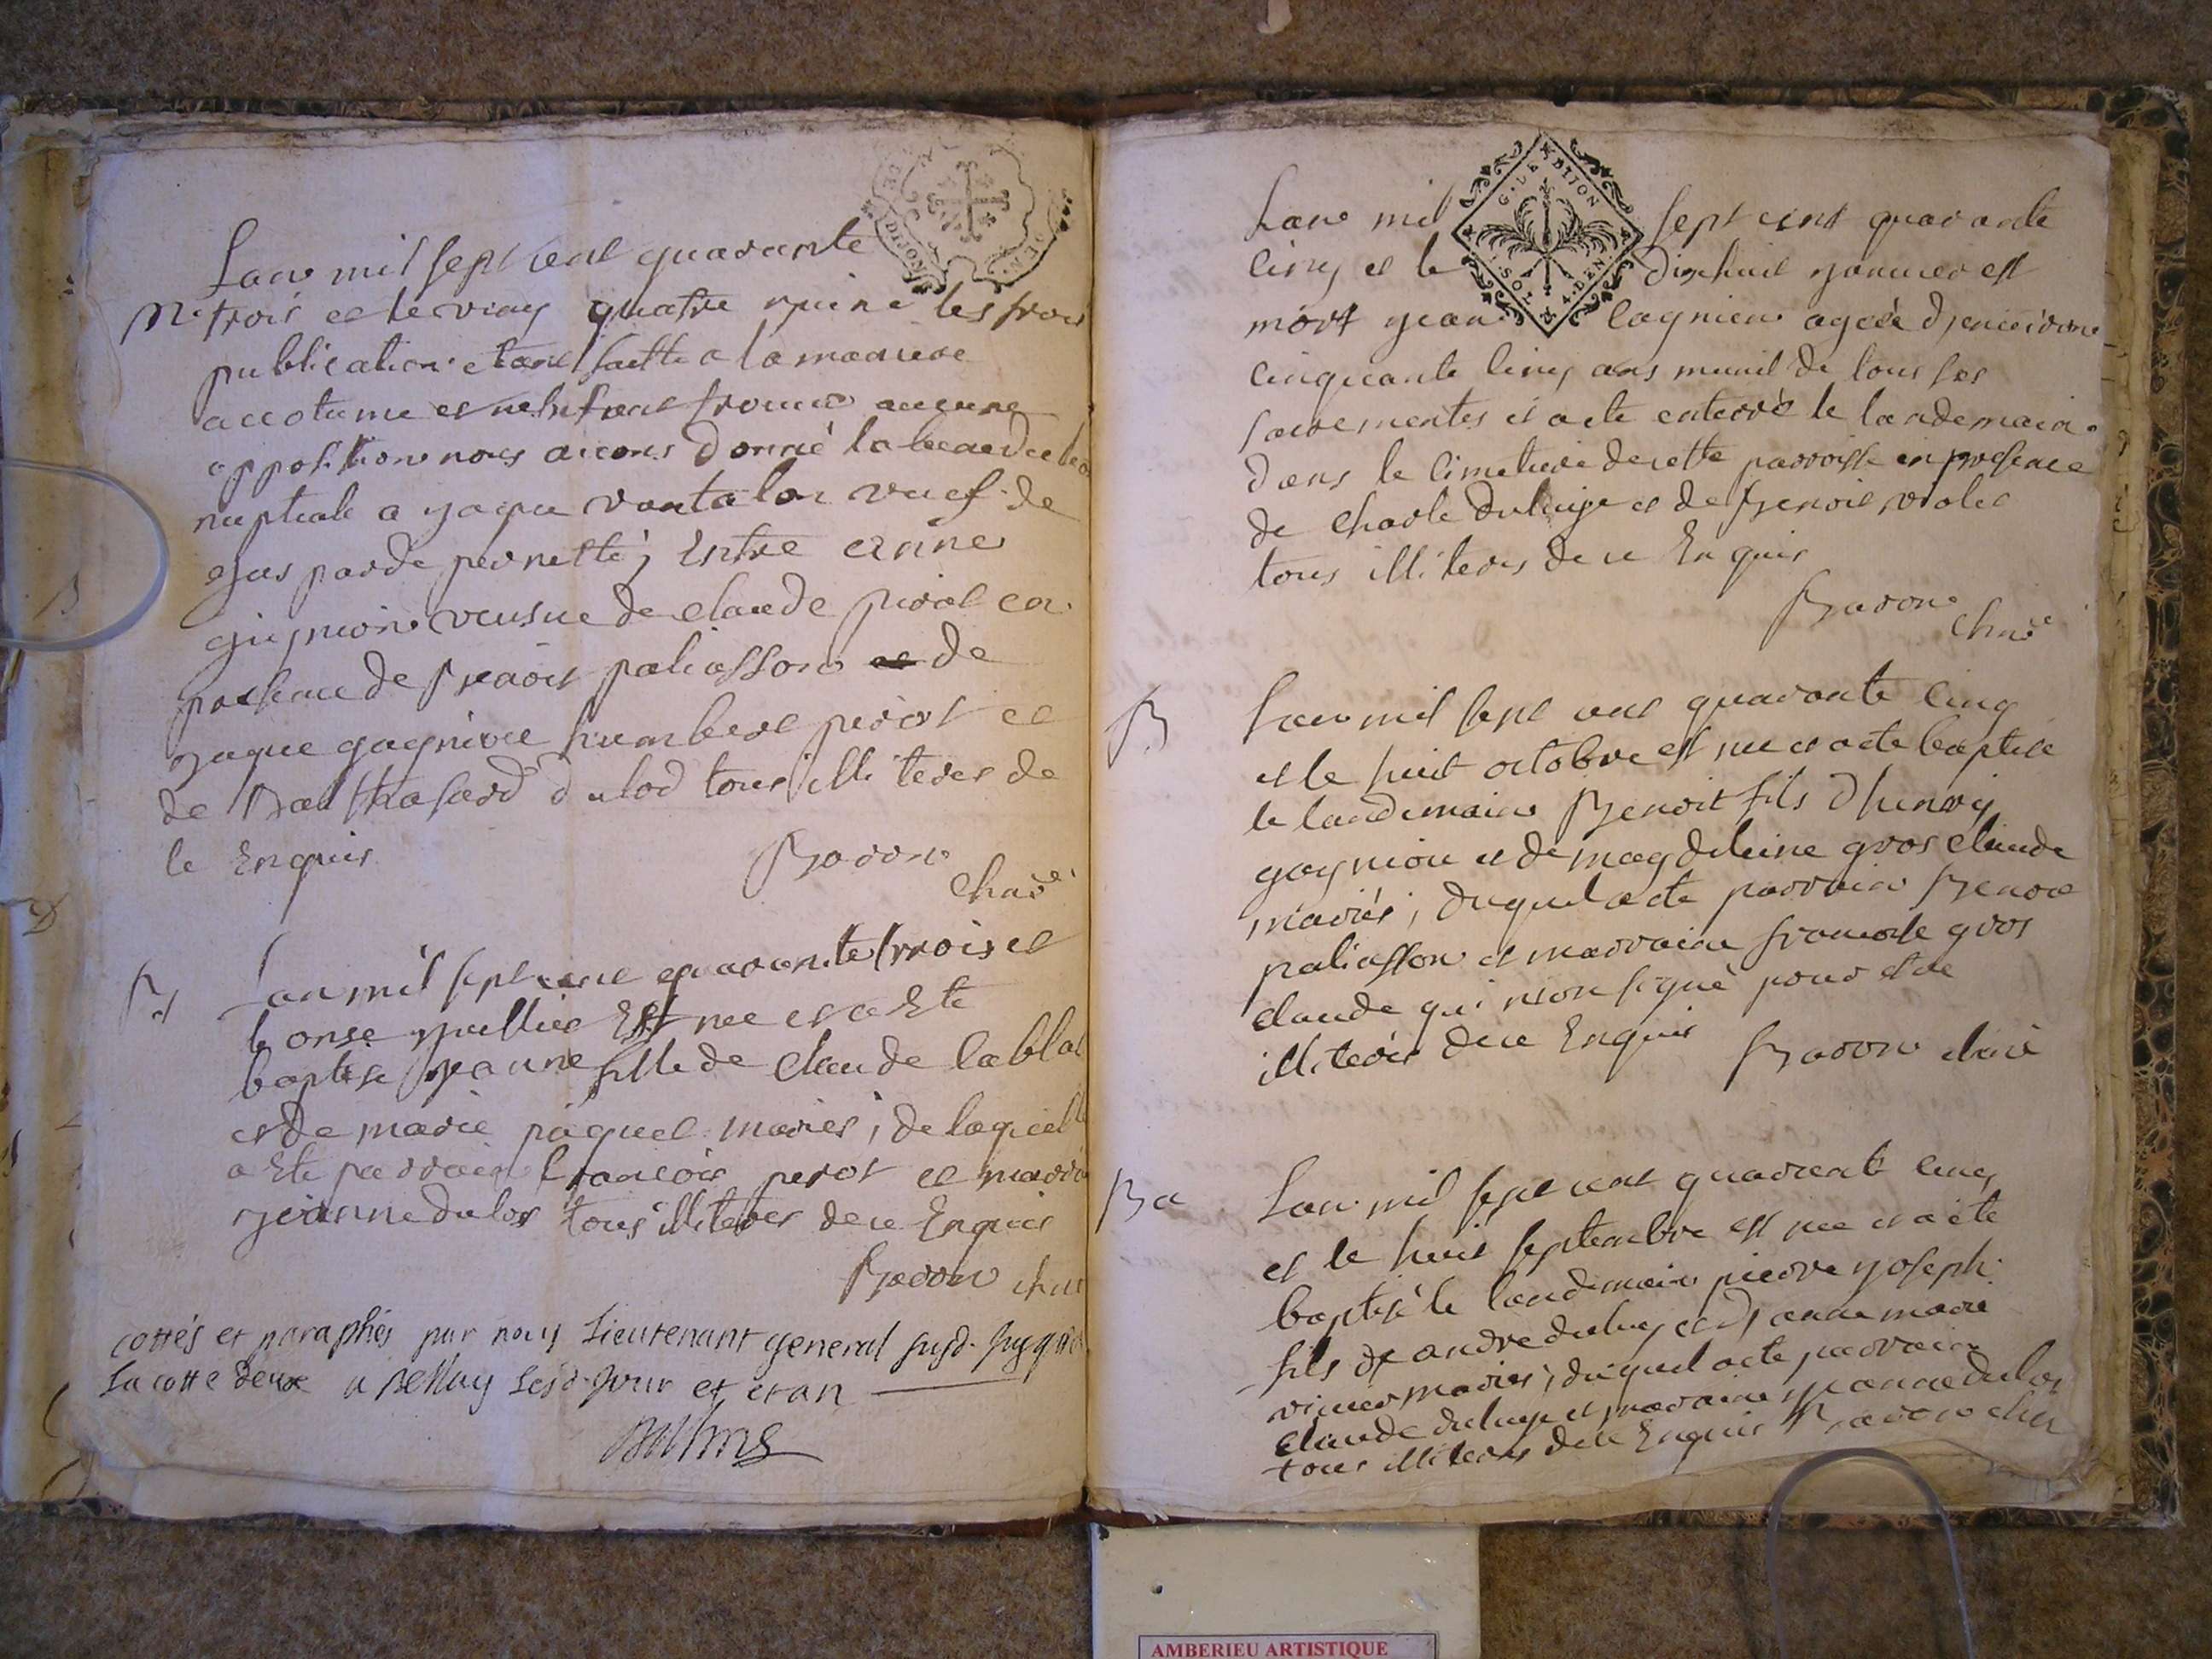 Lan mil sept cent quarante
M. trois et le ving quatre les trois
publication etant faitte a la maniere
accotume et trouvé aucune
opposition nous avons donné la
nuptiale a yaque vantalon veuf de
parde pernette; Entre anne
veusue de claude pirat en
presence de benoit paliasson de
yaque gagniere humbert perot et
de Balthasard dulod tous illiteres de
le Enquis
Baron
Curé
B
Lan mil sept cent quarante trois et
le onse yuillier Est nee et a Ete
baptise yeanne fille de claude lablat
et de marie paquet mariés; de laquell
a Ete parrain francois perot et marra
yeanne dulos tous illiteres de ce Enquis
Baron
cottés et paraphés par nous Lieutenant general susd.
La cotte deux a Bellay Lesd. Jour et et an
DIJON
Lan mil sept cent quarante
cinq et le dixhuit yanvier est
mort yean cagnieu agée denviron
cinquante cinq ans munit de tous ses
sacrementes il a ete enterré le landemain
dans le cimetiere de cette parroisse en presence
de Charle duluije et de benoit violet
tous illiteres de ce Enquis
Baron
Curé
G. DE DIJON
1 SOL 4. DEN
B
Lan mil sept cent quarante cinq
et le huit octobre est nee et a ete baptise
le landemain Benoit fils dhenry
gagniou et de magdeleine gros claude
mariés; duquel a ete parrain Benoit
paliasson et marraine francoise gros
claude qui nion signé pour etre
illiteres de ce Enquis
Baron curé
Ba
Lan mil sept cent quarent cinq
et le huit septembre est nee et a ete
baptisé le landemain pierre yoseph
fils de andre duluy et danne marie
mariés; duquel a ete parrain
claude duluye et marraine yeanne dulos
tous illiteres de ce Enquis Baron
AMBERIEU ARTISTIQUE